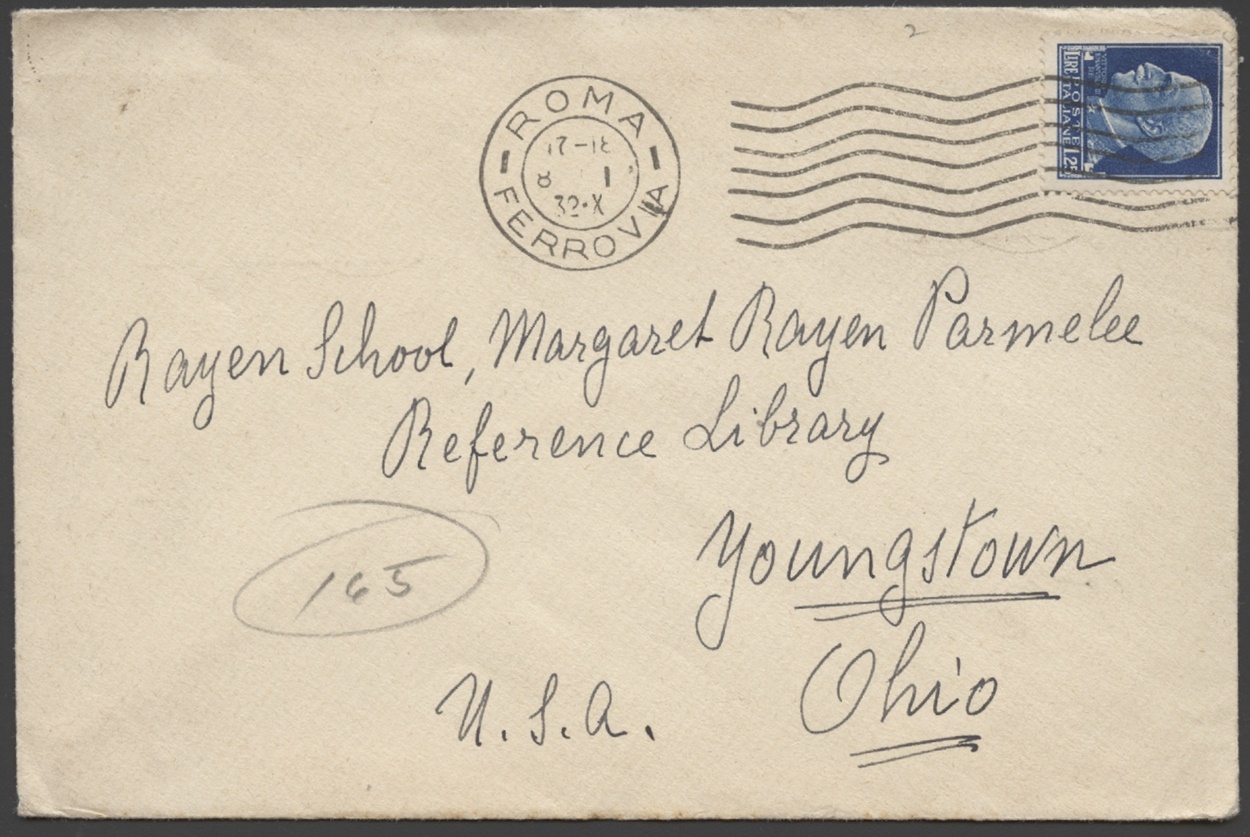 2
ROMA
FERROVIA
17-18
8 1
32·X
POSTE ITALIANE
LIRE 1,25
Rayen School, Margaret Rayen Parmelee
Reference Library
Youngstown
Ohio
U.S.A.
165